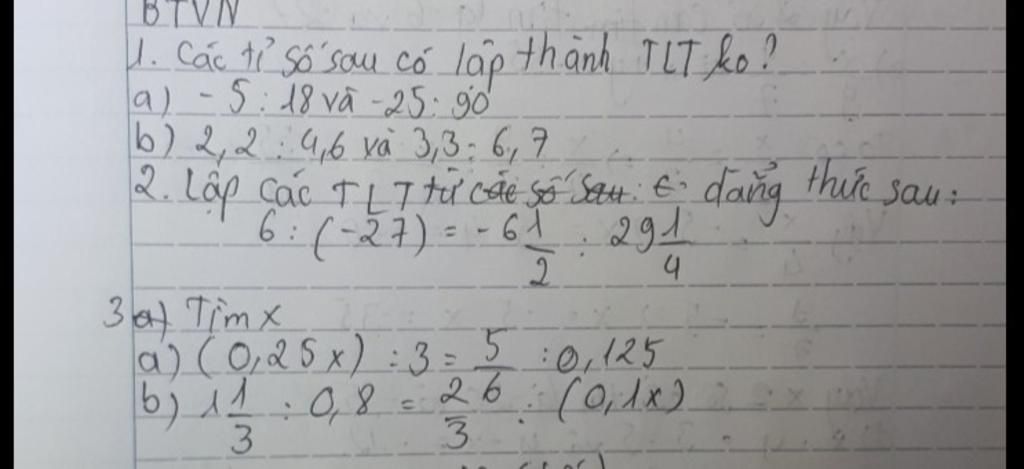 BTVN
1. Các tỉ số sau có lập thành TLT ko?
a) -5:18 và -25:90
b) 2,2:4,6 và 3,3:6,7
2. Lập các TLT từ các số sau: € đẳng thức sau:
6:(-27) = -6 1/2 : 29 1/4
3 a) Tìm x
a) (0,25x):3 = 5/6 :0,125
b) 1 1/3 : 0,8 = 2/3 : (0,1x)